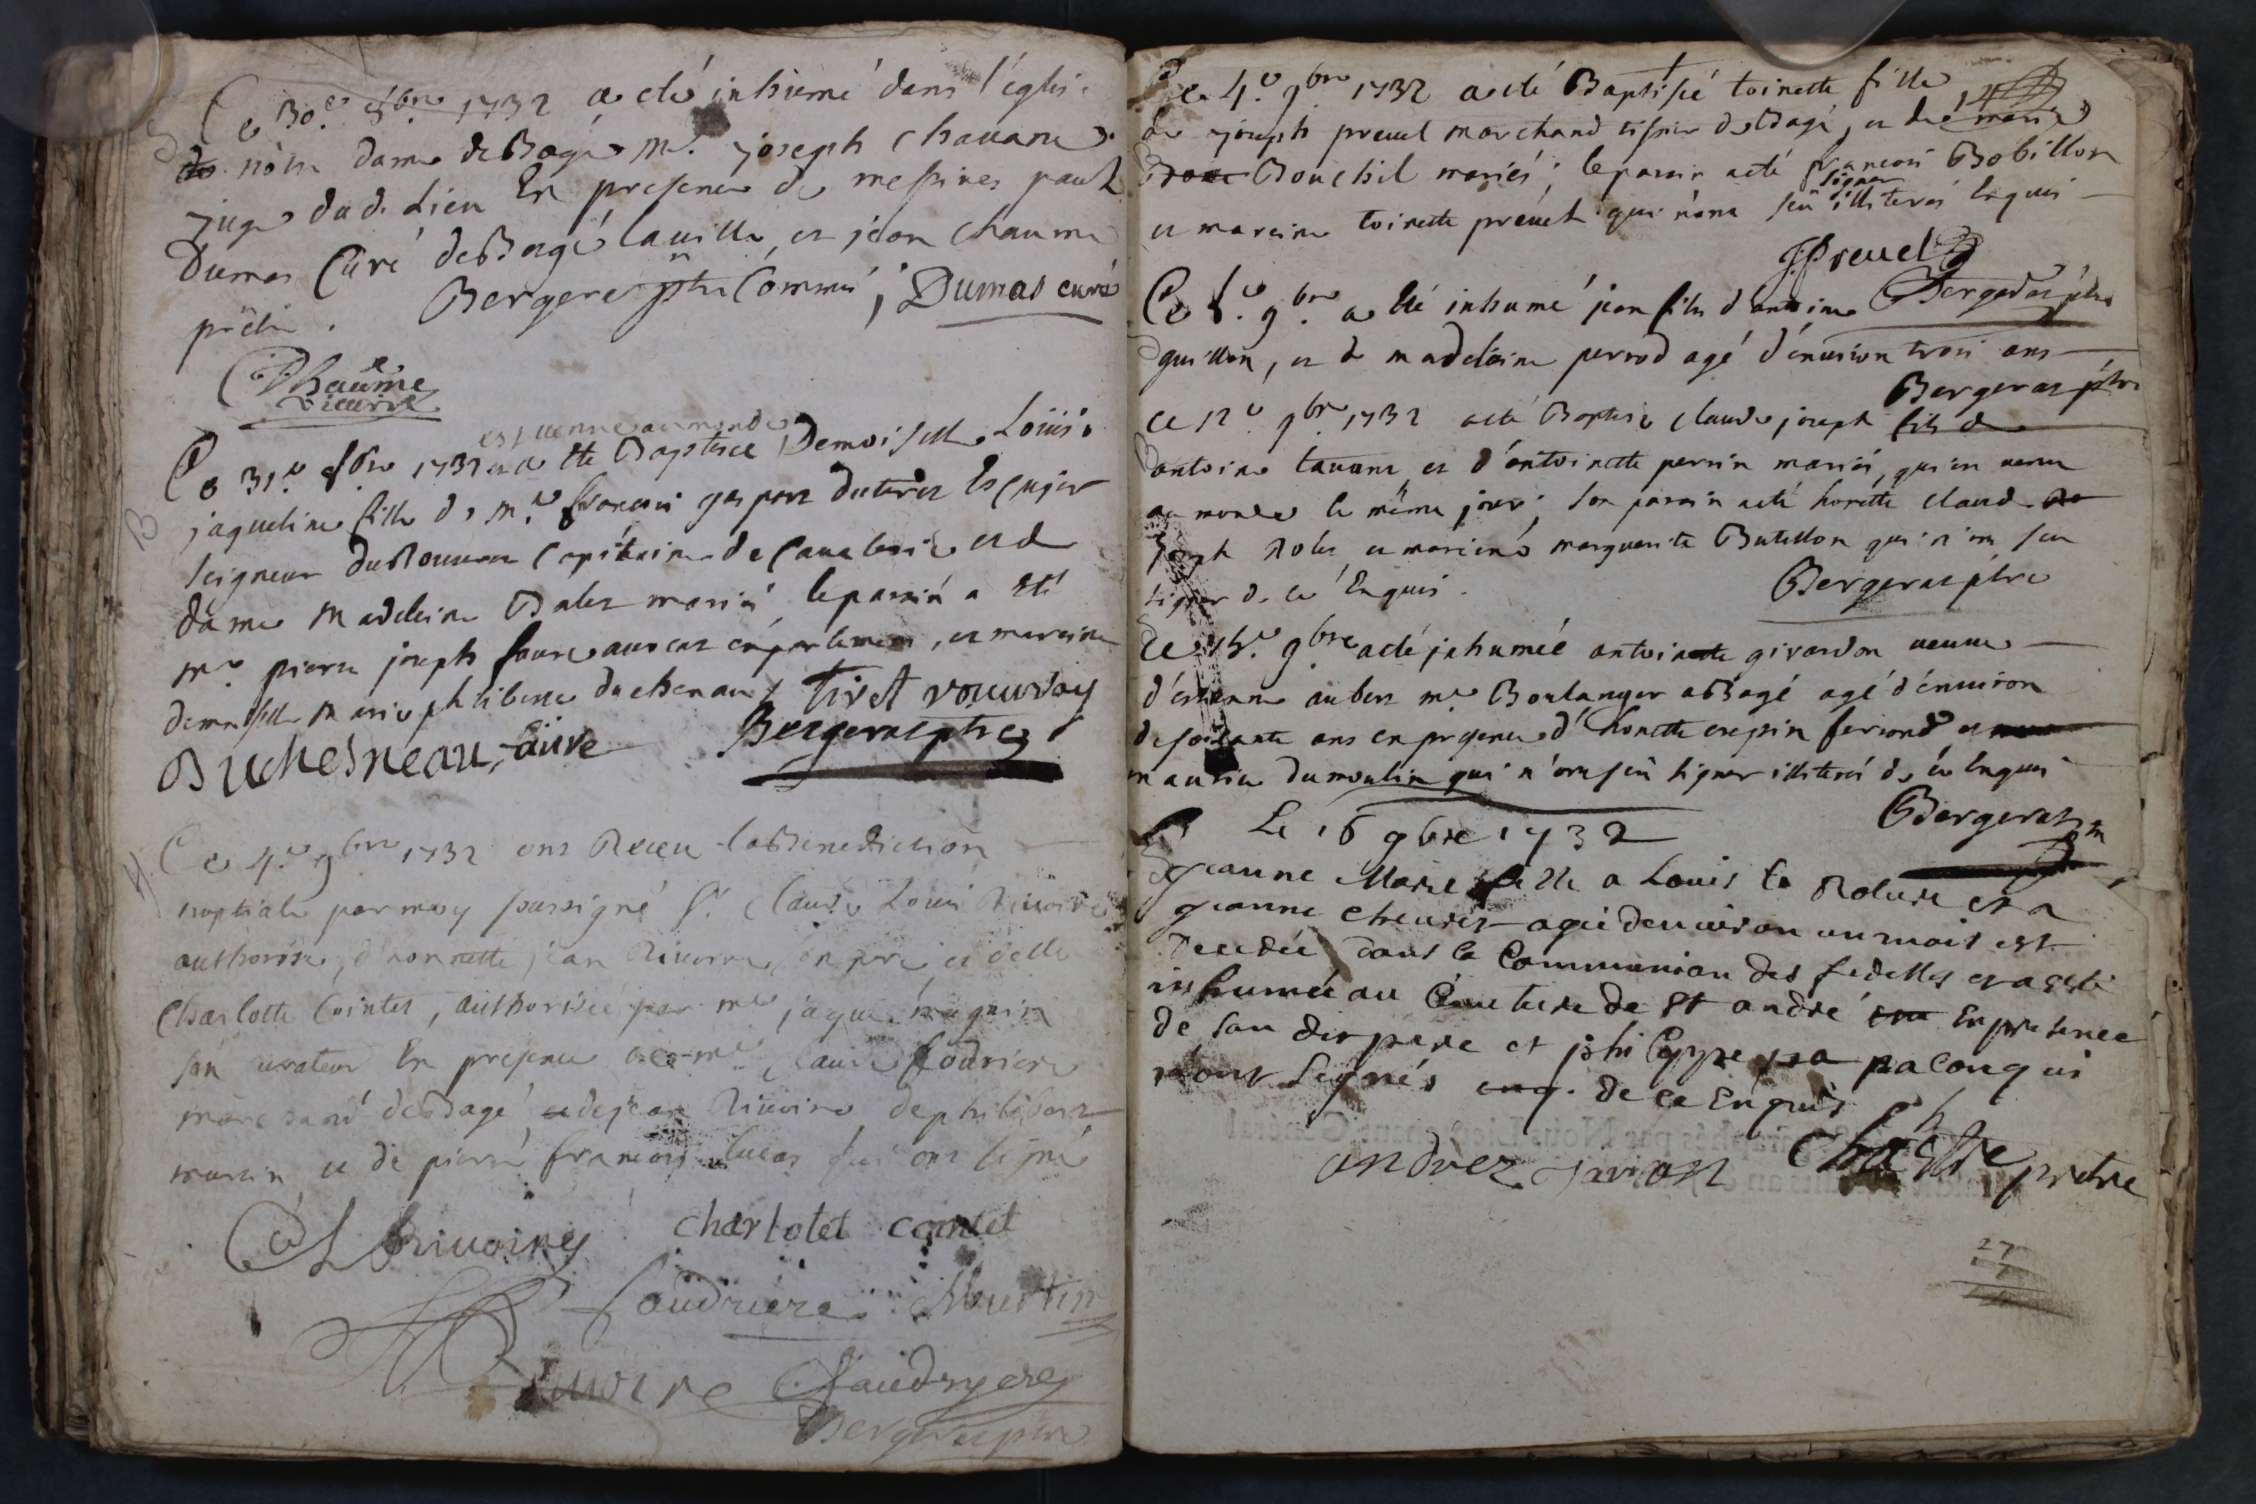 S
Ce 30.e 8bre 1732 a eté inhumé dans l'églis.
de nôtre dame de Bagé Mr. joseph Chavane
juge dud. Lieu En presence de messires paul
Dumas Curé de Bagé laville, et jean Chaume
Bergerat ptre Commis ; Dumas curé
prêtre .
Chaûme
vicaire
est venue au monde
Ce 31.e 8bre 1732 et a ete Baptisee Demoiselle Loüise
B
jaqueline fille de Mr. françois gaspard Escuyer
seigneur Capitaine de Cavalerie et de
dame Madeleine mariés le parrin a eté
Mre pierre joseph faure avocat en parlement, et mareine
demoiselle Marie philiberte duchenau / Tiret vouvray
Duchesneau, faure Bergerat ptre
Ce 4.e 9bre 1732 ont Receu la Benediction
nuptiale par moy soussigné Sr. Claude Louis Rivoire
authorisé, d'honnette jean Rivoire son pere et delle
Charlotte Cointet, authorisée par mre jaque
son curateur En presence de mre Claude foudriere
marchand de Bagé, et de jean Rivoire, de philibert
martin et de pierre françois lucas qui ont signé
C L Rivoirey charlotet comtet
foudriere Martin
Rivoire faudryere
Bergerat ptre
Ce 4.e 9bre 1732 a eté Baptisée toinette fille
de joseph prevel marchand tissier de Bagé, et de marie
Bouchil mariés ; le parain a eté françois Bobillon
signer
et mareine toinette prevel qui n'ont seu illiterés Enquis
J Prevel
Ce 9bre a eté inhumé jean fils d'antoine Bergerat ptre
guillon, et de madeleine perrod agé d'environ trois ans
Bergerat ptre
Ce 12e 9bre 1732 a eté Baptisé claude joseph fils de
antoine tavans et d'antoinette perrin mariés, qui est venu
au monde le même jour ; son parain a eté honette claude
joseph et mareine marguerite Butillon qui n'ont seu
signer de ce Enquis .
Bergerat ptre
Ce 9bre a eté jnhumée antoinette girardon veuve
d'estienne aubert mre Boulanger a Bagé agé d'environ
de soixante ans en presence d'honette crepin feriond et
maurice dumoulin qui n'ont seu signer illiterés de ce Enquis
Bergerat
Le 16 9bre 1732
jeanne Marie fille a Louis la Roture et a
jeanne agée denviron un mois est
decedée dans la Communion des fedelles et a esté
inhumée au Cimetiere de St andré En presence
de son dit pere et philippe palonquis
nont Signés enq. de ce Enquis
andrez Chasttre pretre
27